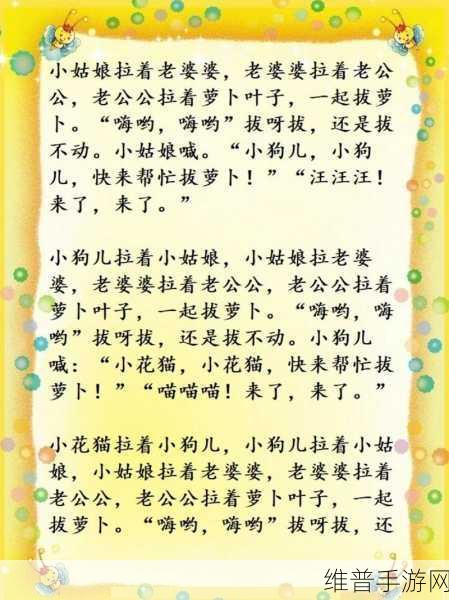 小姑娘拉着老婆婆，老婆婆拉着老公
公，老公公拉着萝卜叶子，一起拔萝
卜。“嗨哟，嗨哟”拔呀拔，还是拔
不动。小姑娘喊。“小狗儿，小狗
儿，快来帮忙拔萝卜！”“汪汪汪！
来了，来了。”
小狗儿拉着小姑娘，小姑娘拉老婆
婆，老婆婆拉着老公公，老公公拉着
萝卜叶子，一起拔萝卜。“嗨哟，嗨
哟”拔呀拔，还是拔不动。小狗儿
喊：“小花猫，小花猫，快来帮忙拔
萝卜！”“喵喵喵！来了，来了。”
小花猫拉着小狗儿，小狗儿拉着小姑
娘，小姑娘拉着老婆婆，老婆婆拉着
老公公，老公公拉着萝卜叶子，一起
拔萝卜。“嗨哟，嗨哟”拔呀拔，还
维普手游网